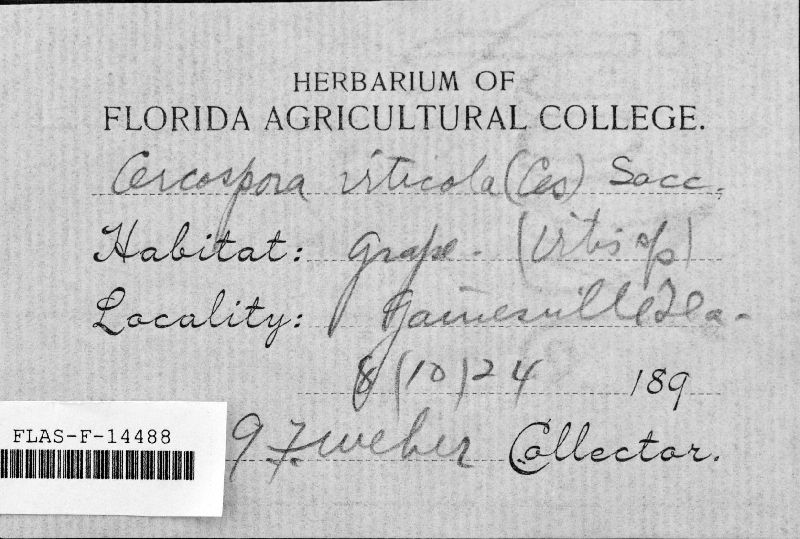 HERBARIUM OF
FLORIDA AGRICULTURAL COLLEGE.
Cercospora viticola (Ces) Sacc.
Habitat: Grape - (Vitis sp)
Locality: Gainesville Fla.
8/10/24 189
FLAS-F-14488
G. F. Weber Collector.